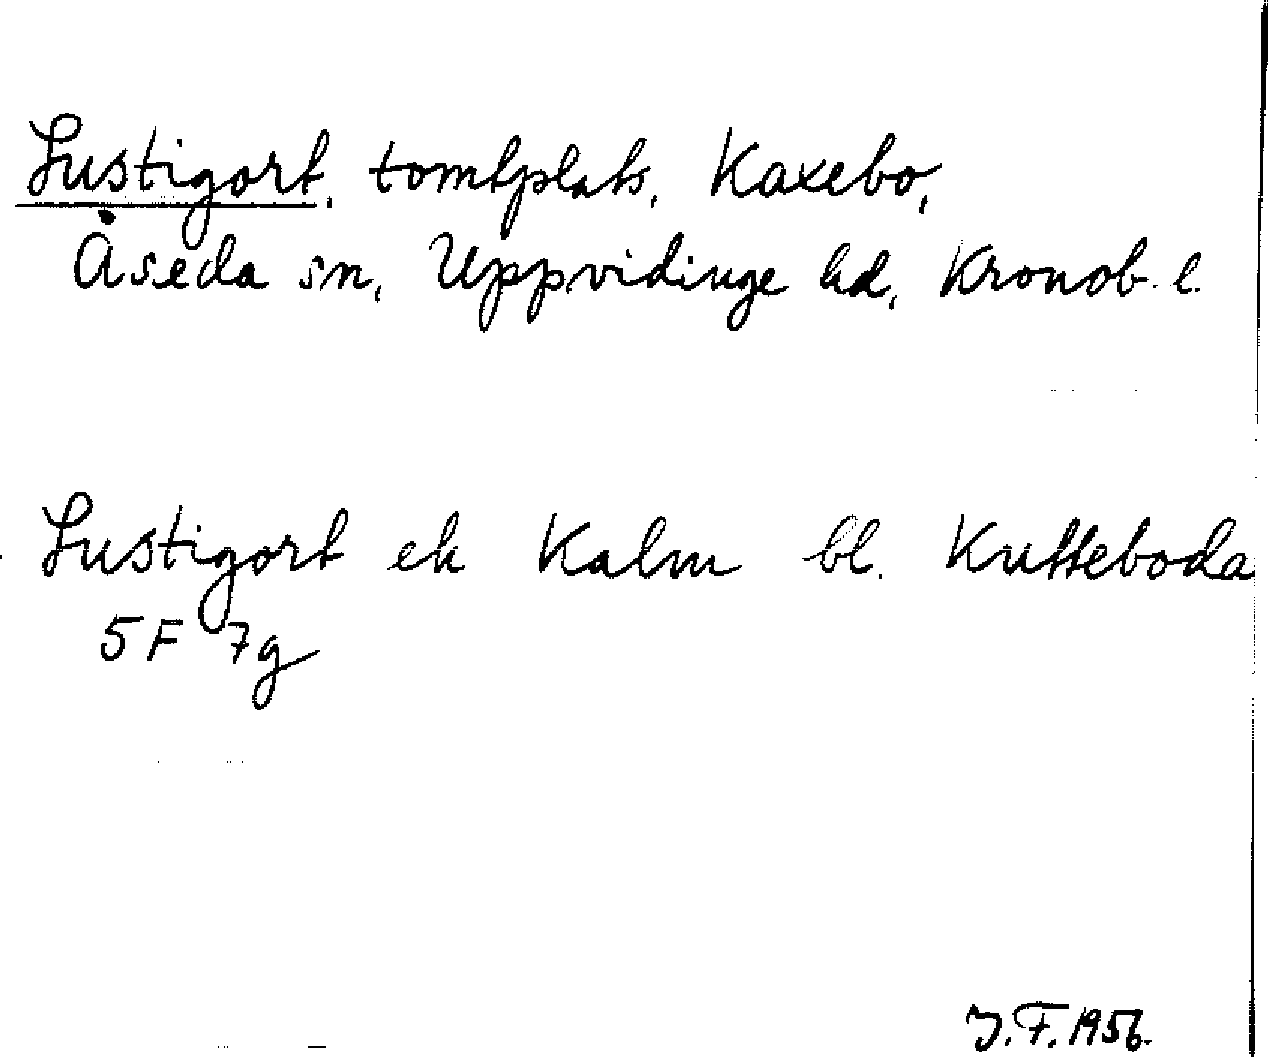 Lustigort, tomtplats, Kaxebo,
Åseda sn, Uppvidinge hd, Kronob. l.
Lustigort ek Kalm bl. Kutteboda
5F 7g
J.F. 1956.